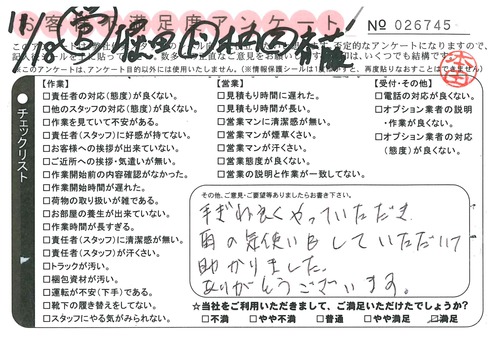 お客様満足度アンケート
11/8 (営)
№ 026745
※このアンケートは、アンケート目的以外には使用いたしません。(※情報保護シールは1度はがすと、再度貼りなおすことはできません)
チェックリスト
【作業】
□責任者の対応(態度)が良くない。
□他のスタッフの対応(態度)が良くない。
□作業を見ていて不安がある。
□責任者(スタッフ)に好感が持てない。
□お客様への挨拶が出来ていない。
□ご近所への挨拶・気遣いが無い。
□作業開始前の内容確認がなかった。
□作業開始時間が遅れた。
□荷物の取り扱いが雑である。
□お部屋の養生が出来ていない。
□作業時間が長すぎる。
□責任者(スタッフ)に清潔感が無い。
□責任者(スタッフ)が汗くさい。
□トラックが汚い。
□梱包資材が汚い。
□運転が不安(下手)である。
□靴下の履き替えをしてない。
□スタッフにやる気がみられない。
【営業】
□見積もり時間に遅れた。
□見積もり時間が長い。
□営業マンに清潔感が無い。
□営業マンが煙草くさい。
□営業マンが汗くさい。
□営業態度が良くない。
□営業の説明と作業が一致してない。
【受付・その他】
□電話の対応が良くない。
□オプション業者の説明
・作業が良くない。
□オプション業者の対応
(態度)が良くない。
その他、ご意見・ご要望等ありましたらお書き下さい。
手ぎわ良くやっていただき
雨の気使いもしていただいて
助かりました。
ありがとうございます。
☆当社をご利用いただきまして、ご満足いただけたでしょうか?
□不満 □やや不満 □普通 □やや満足 ☑満足